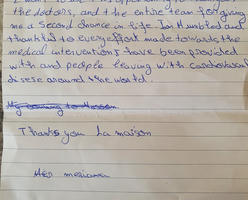 the doctors, and the entire team for giving
me a Second chance in life. I am Humbled and
thankful to every effort made towards the
medical interventions I have been provided
with and people leaving with Cardiovascul
disese around the world.
Thanks you La maison